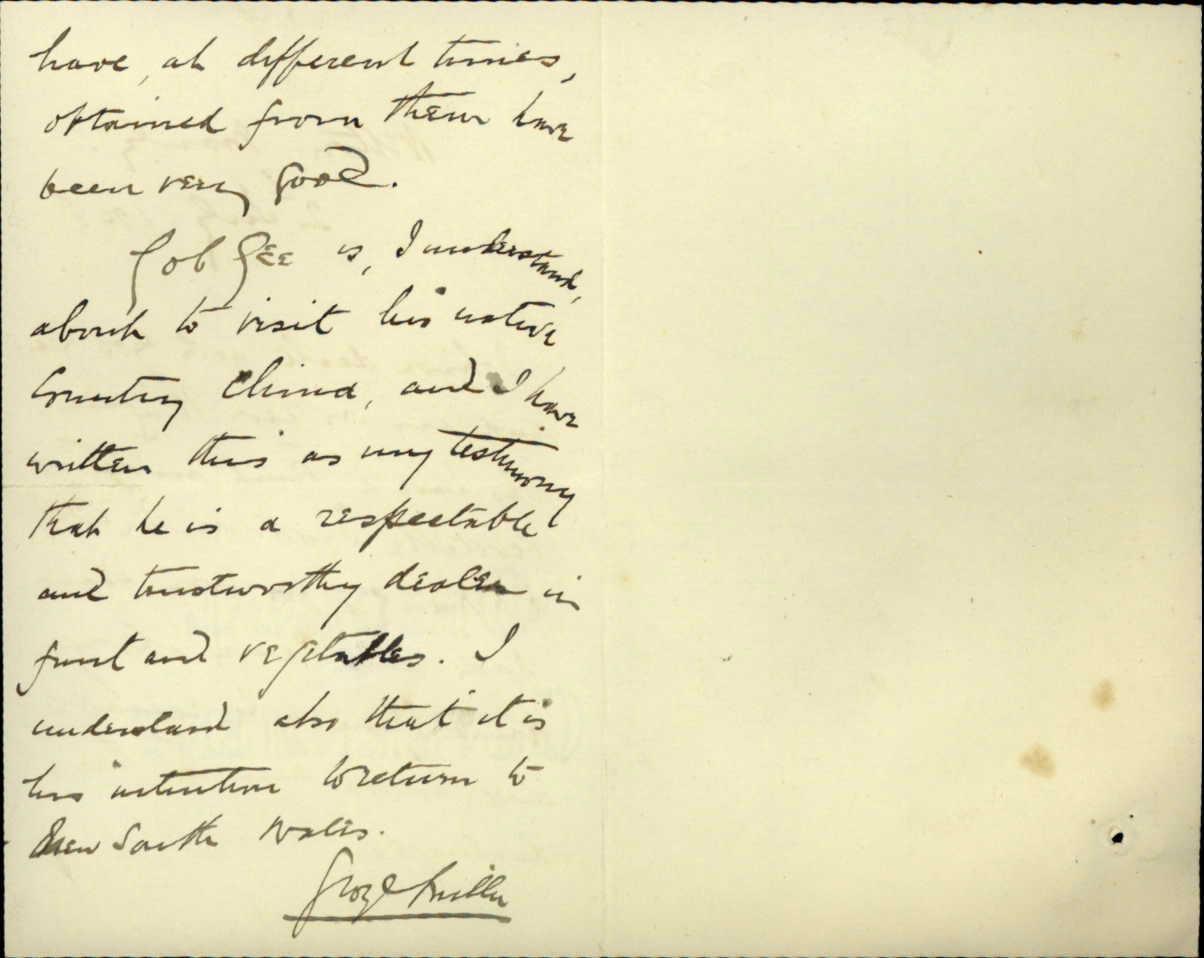 have, at different times,
obtained from them have
been very good.
Gob Gee is, I understand,
about to visit his native
Country China, and I have
written this as my testimony
that he is a respectable
and trustworthy dealer in
fruit and vegetables. I
understand also that it is
his intention to return to
New South Wales.